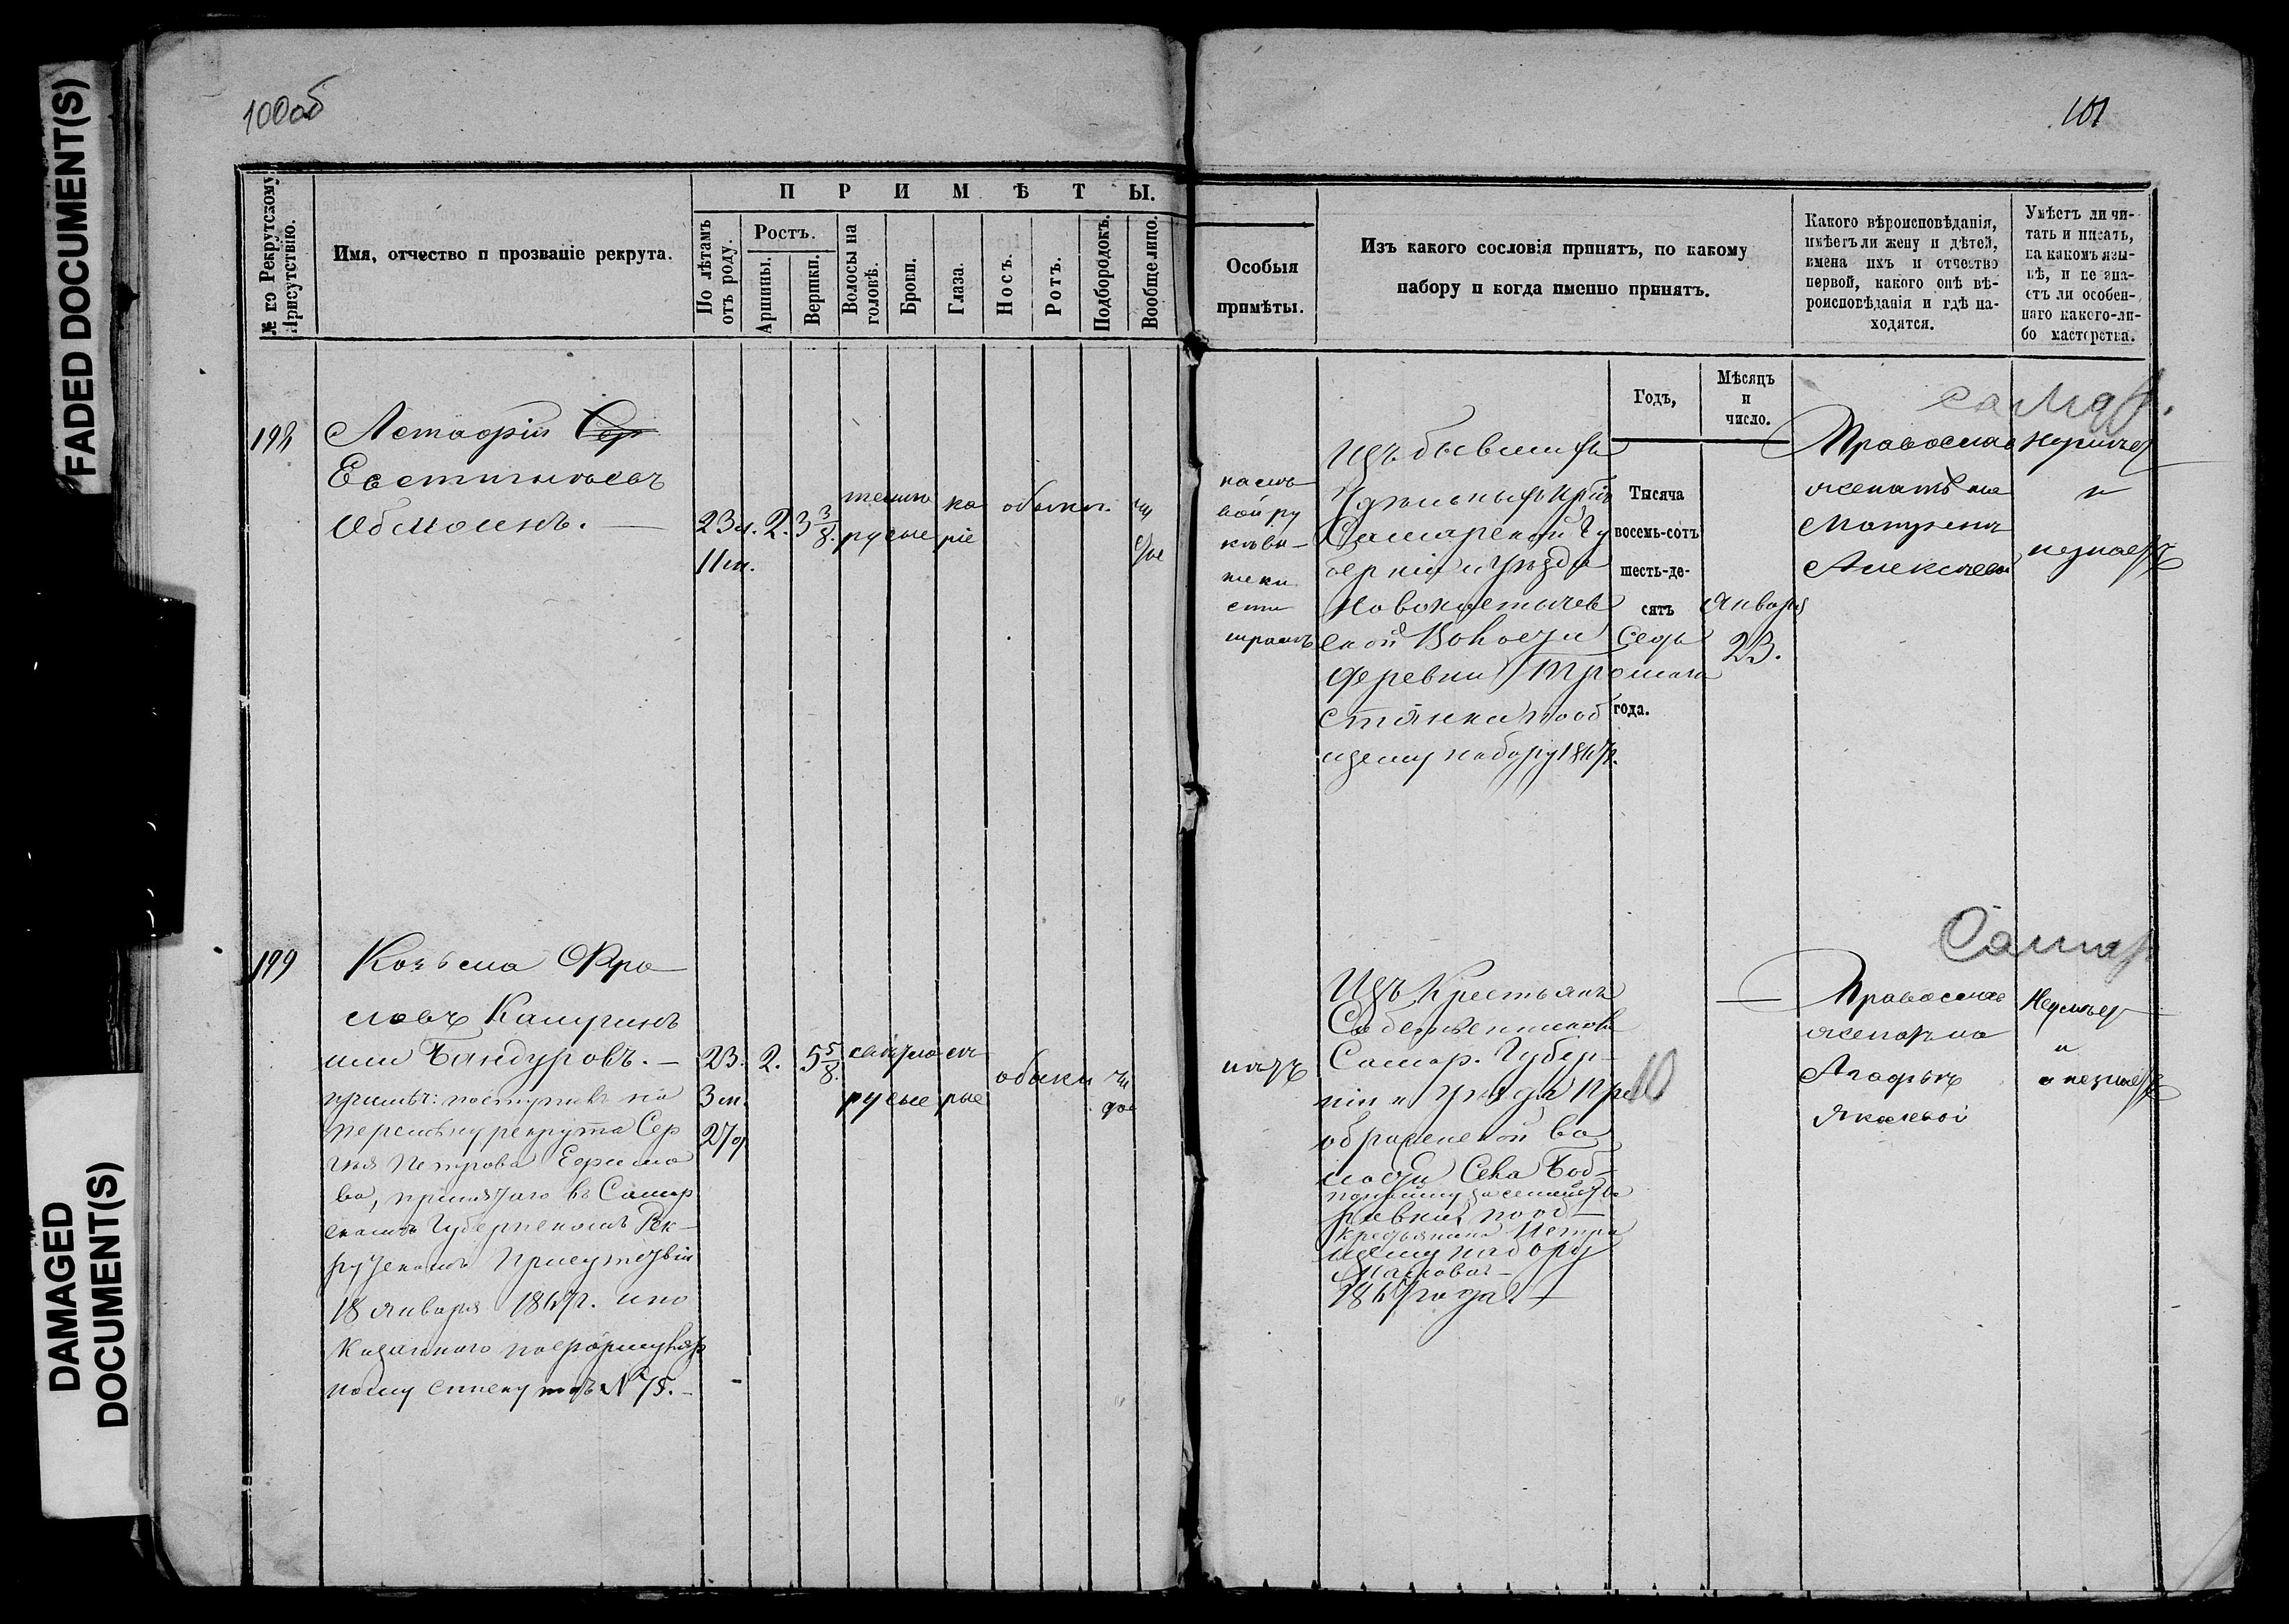 FADED DOCUMENT(S)
DAMAGED
DOCUMENT(S)
100об
101
№ по Рекрутскому
Присутствію.
Имя, отчество и прозваніе рекрута.
ПРИМѢТЫ.
По лѣтамъ
отъ роду.
Ростъ.
Аршины.
Вершки.
Волосы на
головѣ.
Брови.
Глаза.
Носъ.
Ротъ.
Подбородокъ.
Вообще лицо.
Особыя
примѣты.
Изъ какого сословія принятъ, по какому
набору и когда именно принятъ.
Какого вѣроисповѣданія,
имѣетъ ли жену и дѣтей,
имена ихъ и отчество
первой, какого онѣ вѣ-
роисповѣданія и гдѣ на-
ходятся.
Умѣетъ ли чи-
тать и писать,
на какомъ язы-
кѣ, и не зна-
етъ ли особен-
наго какого-ли-
бо мастерства.
Годъ,
Мѣсяцъ
и
число.
198
Астафій Сер
Евстигнѣевъ
23 л.
11 м.
2.
3 3/8.
темно
русые
ка
ріе
обыкн.
чи
стое
на лѣ
вой ру
кѣ
Изъ бывшихъ
Удѣльныхъ крѣ
Самарской Гу
берніи и уѣзда
Новокостычев
ской Волости
деревни
по об
щему набору 1867 г.
Тысяча
восемь-сотъ
шесть-де-
сятъ
Седь
года.
Января
23.
Самар.
Православ
женатъ на
Матренѣ
Алексѣевой
неумѣет
и
незнаетъ
199
Козьма Фро
ловъ Кашринъ
или Бандуровъ.
примѣч: поступилъ на
перемѣну рекрута Сер
гѣя Петрова Ефимо
ва, принятаго въ Самар
скомъ Губернскомъ Рек-
рутскомъ Присутствіи
18 января 1867 г. и по
казаннаго по формуляр
ному списку подъ № 75.
23.
3 м.
27 д.
2.
5 5/8.
свѣтло
русые
сѣ
рые
обыкн
чи
стое
нѣтъ
Изъ Крестьянъ
Собственниковъ
Самар. Губер-
ніи и уѣзда Пре
ображенской во
лости Села Боб-
по найму за семейство
ровки, по об-
крестьянина Петра
щему набору
1867 года.
10
Самар
Православ
женатъ на
Агафьѣ
Яковлевой
Неумѣет
и
незнаетъ